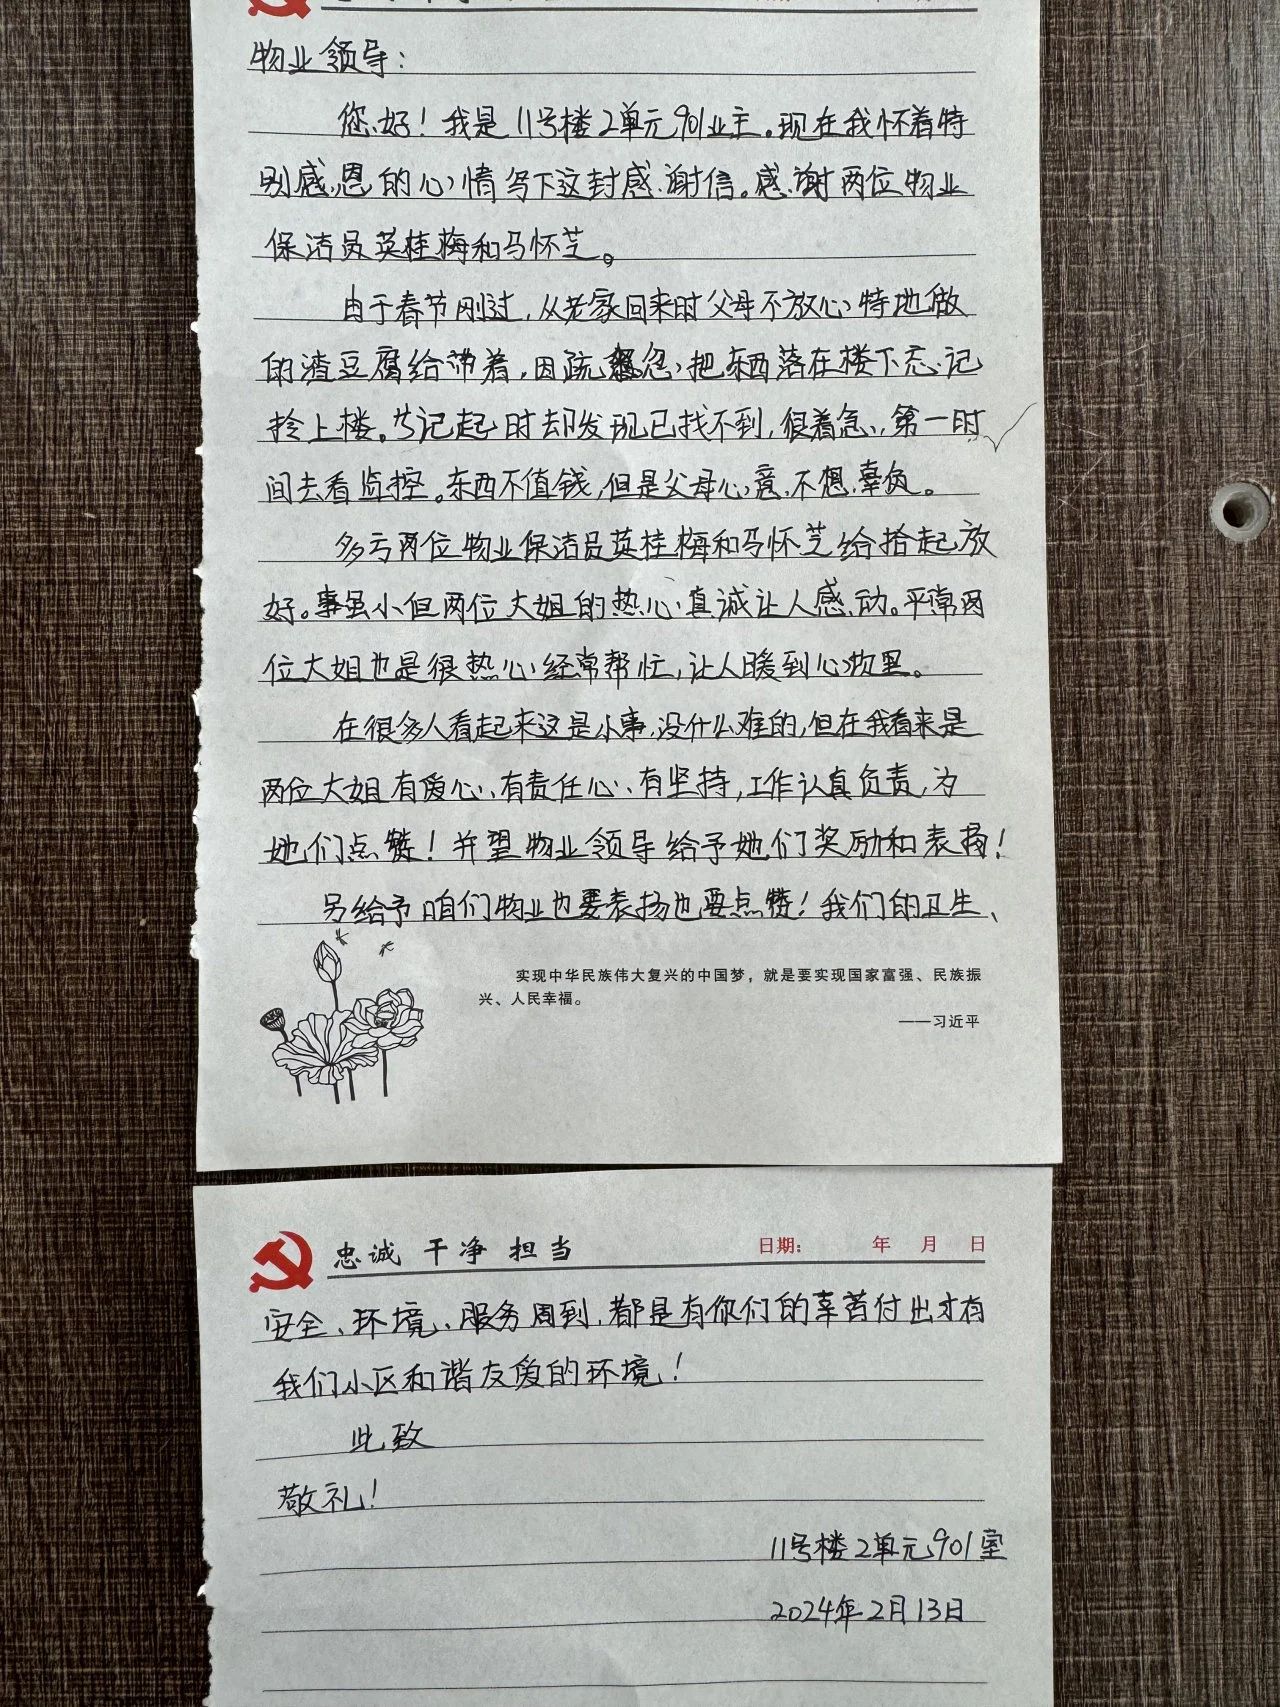 物业领导：
您好！我是11号楼2单元901业主。现在我怀着特
别感恩的心情写下这封感谢信。感谢两位物业
保洁员英桂梅和马怀芝。
由于春节刚过，从老家回来时父母不放心特地做
的渣豆腐给带着，因疏忽，把东西落在楼下忘记
拎上楼。等记起时却发现已找不到，很着急，第一时
间去看监控。东西不值钱，但是父母心意，不想辜负。
多亏两位物业保洁员英桂梅和马怀芝给拾起放
好。事虽小但两位大姐的热心真诚让人感动。平常两
位大姐也是很热心经常帮忙，让人暖到心坎里。
在很多人看起来这是小事，没什么难的，但在我看来是
两位大姐有爱心、有责任心、有坚持，工作认真负责，为
她们点赞！并望物业领导给予她们奖励和表扬！
另给予咱们物业也要表扬也要点赞！我们的卫生、
实现中华民族伟大复兴的中国梦，就是要实现国家富强、民族振
兴、人民幸福。
——习近平
忠诚 干净 担当 日期： 年 月 日
安全、环境、服务周到，都是有你们的辛苦付出才有
我们小区和谐友爱的环境！
此致
敬礼！
11号楼2单元901室
2024年2月13日